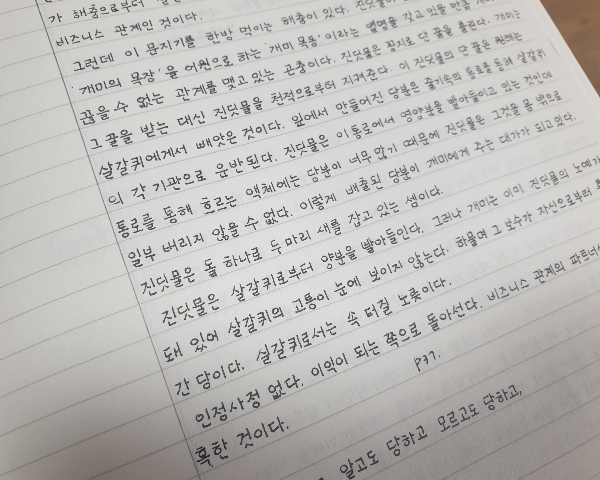 가 해충으로부터
비즈니스 관계인 것이다.
그런데 이 문지기를 한방 먹이는 해충이 있다.
'개미의 목장'을 어원으로 하는 '개미 목동'이라는 별명을 갖고 있을 만큼
끊을 수 없는 관계를 맺고 있는 곤충이다. 진딧물은 꽁지로 단 꿀을 흘린다. 개미는
그 꿀을 받는 대신 진딧물을 천적으로부터 지켜준다. 이 진딧물의 단 꿀은 원래는
살갈퀴에게서 빼앗은 것이다. 잎에서 만들어진 당분은 줄기속의 통로를 통해 살갈퀴
의 각 기관으로 운반된다. 진딧물은 이 통로에서 영양분을 빨아들이고 있는 것인데
통로를 통해 흐르는 액체에는 당분이 너무 많기 때문에 진딧물은 그것을 몸 밖으로
일부 버리지 않을 수 없다. 이렇게 배출된 당분이 개미에게 주는 대가가 되고있다.
진딧물은 돌 하나로 두마리 새를 잡고 있는 셈이다.
진딧물은 살갈퀴로부터 양분을 빨아들인다. 그러나 개미는 이미 진딧물의 노예가
돼 있어 살갈퀴의 고통이 눈에 보이지 않는다. 하물며 그 보수가 자신으로부터
간 당이다. 살갈퀴로서는 속 터질 노릇이다.
인정사정 없다. 이익이 되는 쪽으로 돌아선다. 비즈니스 관계의 파트너
혹한 것이다.
p37.
알고도 당하고 모르고도 당하고,